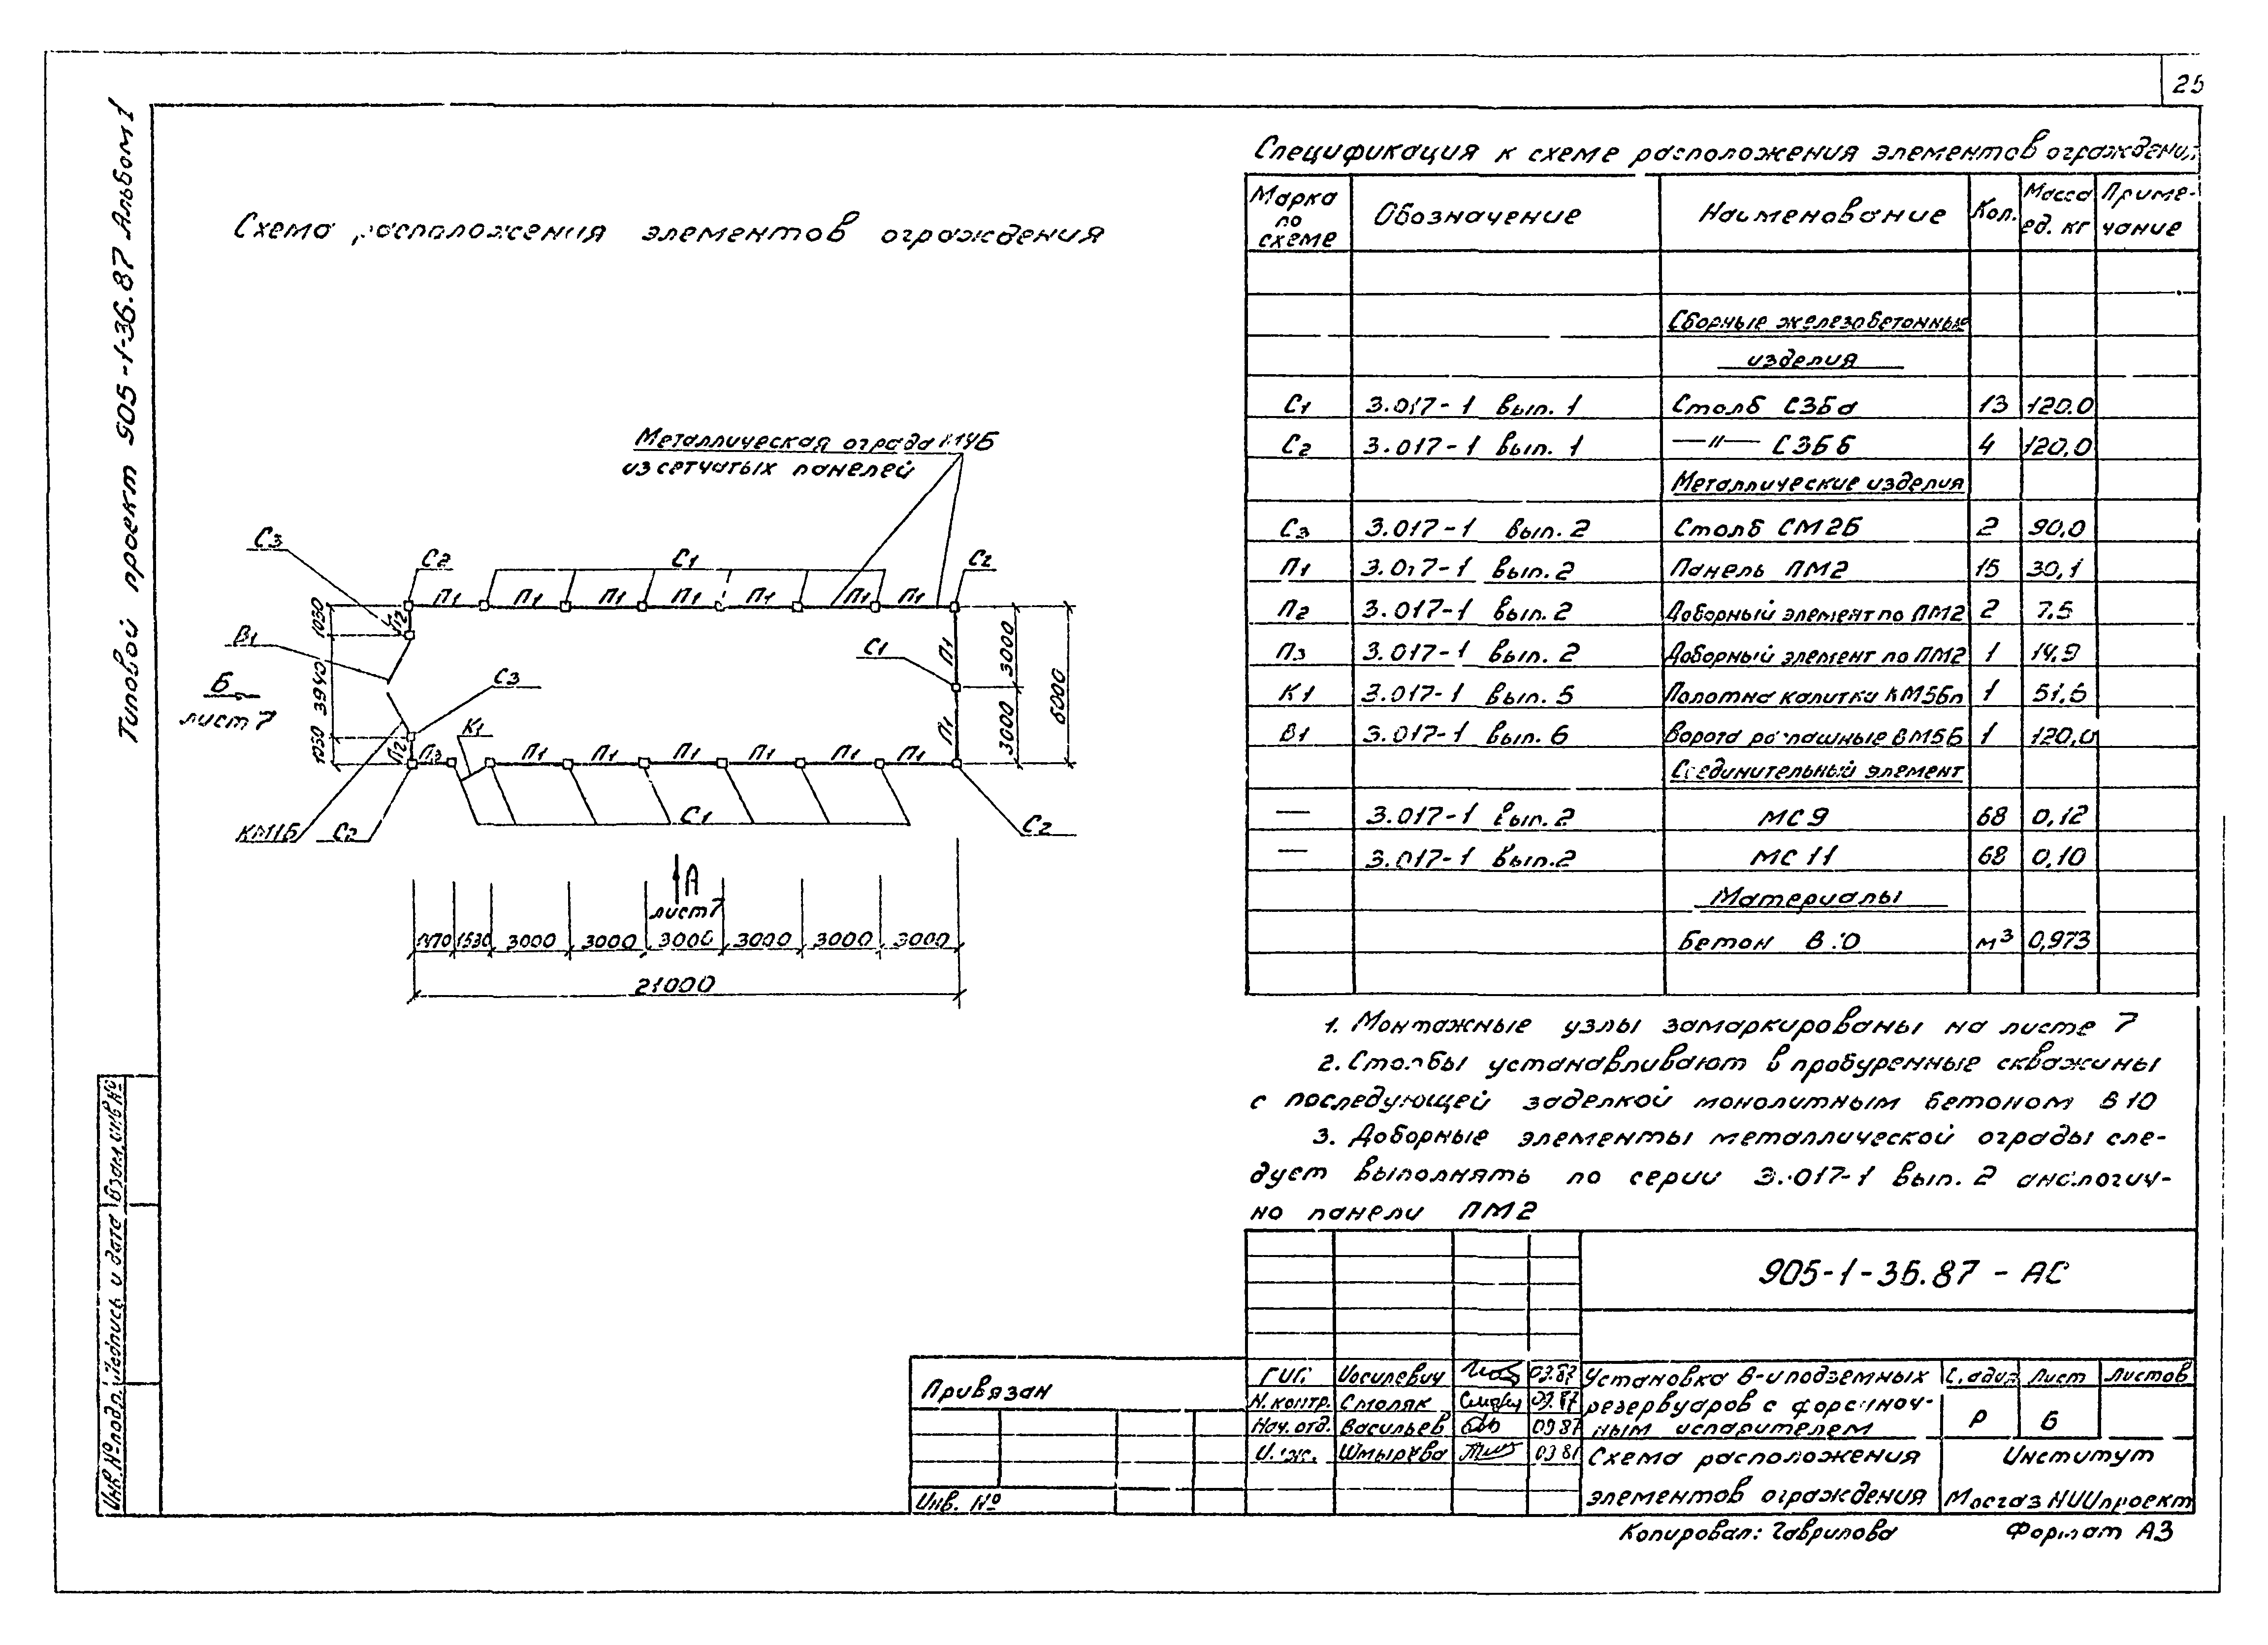 25
Типовой проект 905-1-36.87 Альбом 1
Схема расположения элементов ограждения
Металлическая ограда М4Б
из сетчатых панелей
С3
С2
С1
С2
П1 П1 П1 П1 П1 П1 П1
П2
В1
Б
лист 7
1050
3940
1050
С3
К1
С1
П1
П1
3000
3000
6000
П2
П3 П1 П1 П1 П1 П1 П1
КМ1Б
С2
С1
С2
А
лист 7
1470 1530 3000 3000 3000 3000 3000 3000
21000
Спецификация к схеме расположения элементов ограждения
Марка по схеме Обозначение Наименование Кол. Масса ед. кг Приме-чание
Сборные железобетонные
изделия
С1 3.017-1 вып. 1 Столб С3Ба 13 120.0
С2 3.017-1 вып. 1 —"— С3Бб 4 120,0
Металлические изделия
С3 3.017-1 вып. 2 Столб СМ2Б 2 90,0
П1 3.017-1 вып. 2 Панель ПМ2 15 30,1
П2 3.017-1 вып. 2 Доборный элемент по ПМ2 2 7.5
П3 3.017-1 вып. 2 Доборный элемент по ПМ2 1 14,9
К1 3.017-1 вып. 5 Полотна калитки КМ5Бп 1 51,6
В1 3.017-1 вып. 6 Ворота распашные ВМ5Б 1 120,0
Соединительный элемент
— 3.017-1 вып. 2 МС 9 68 0,12
— 3.017-1 вып. 2 МС 11 68 0,10
Материалы
Бетон В10 м³ 0,973
1. Монтажные узлы замаркированы на листе 7
2. Столбы устанавливают в пробуренные скважины
с последующей заделкой монолитным бетоном В 10
3. Доборные элементы металлической ограды сле-
дует выполнять по серии 3.017-1 вып. 2 аналогич-
но панели ПМ2
905-1-36.87 - АС
ГИП Иосилевич 03.87
Н.контр. Смоляк 03.87
Нач. отд. Васильев 03 87
Инж. Шмырёва 03 87
Установка 8-и подземных
резервуаров с форсуноч-
ным испарителем
Стадия Лист Листов
Р 6
Схема расположения
элементов ограждения
Институт
МосгазНИИпроект
Привязан
Инв. №
Инв. № подл. Подпись и дата Взам. инв №
Копировал: Гаврилова
Формат А3